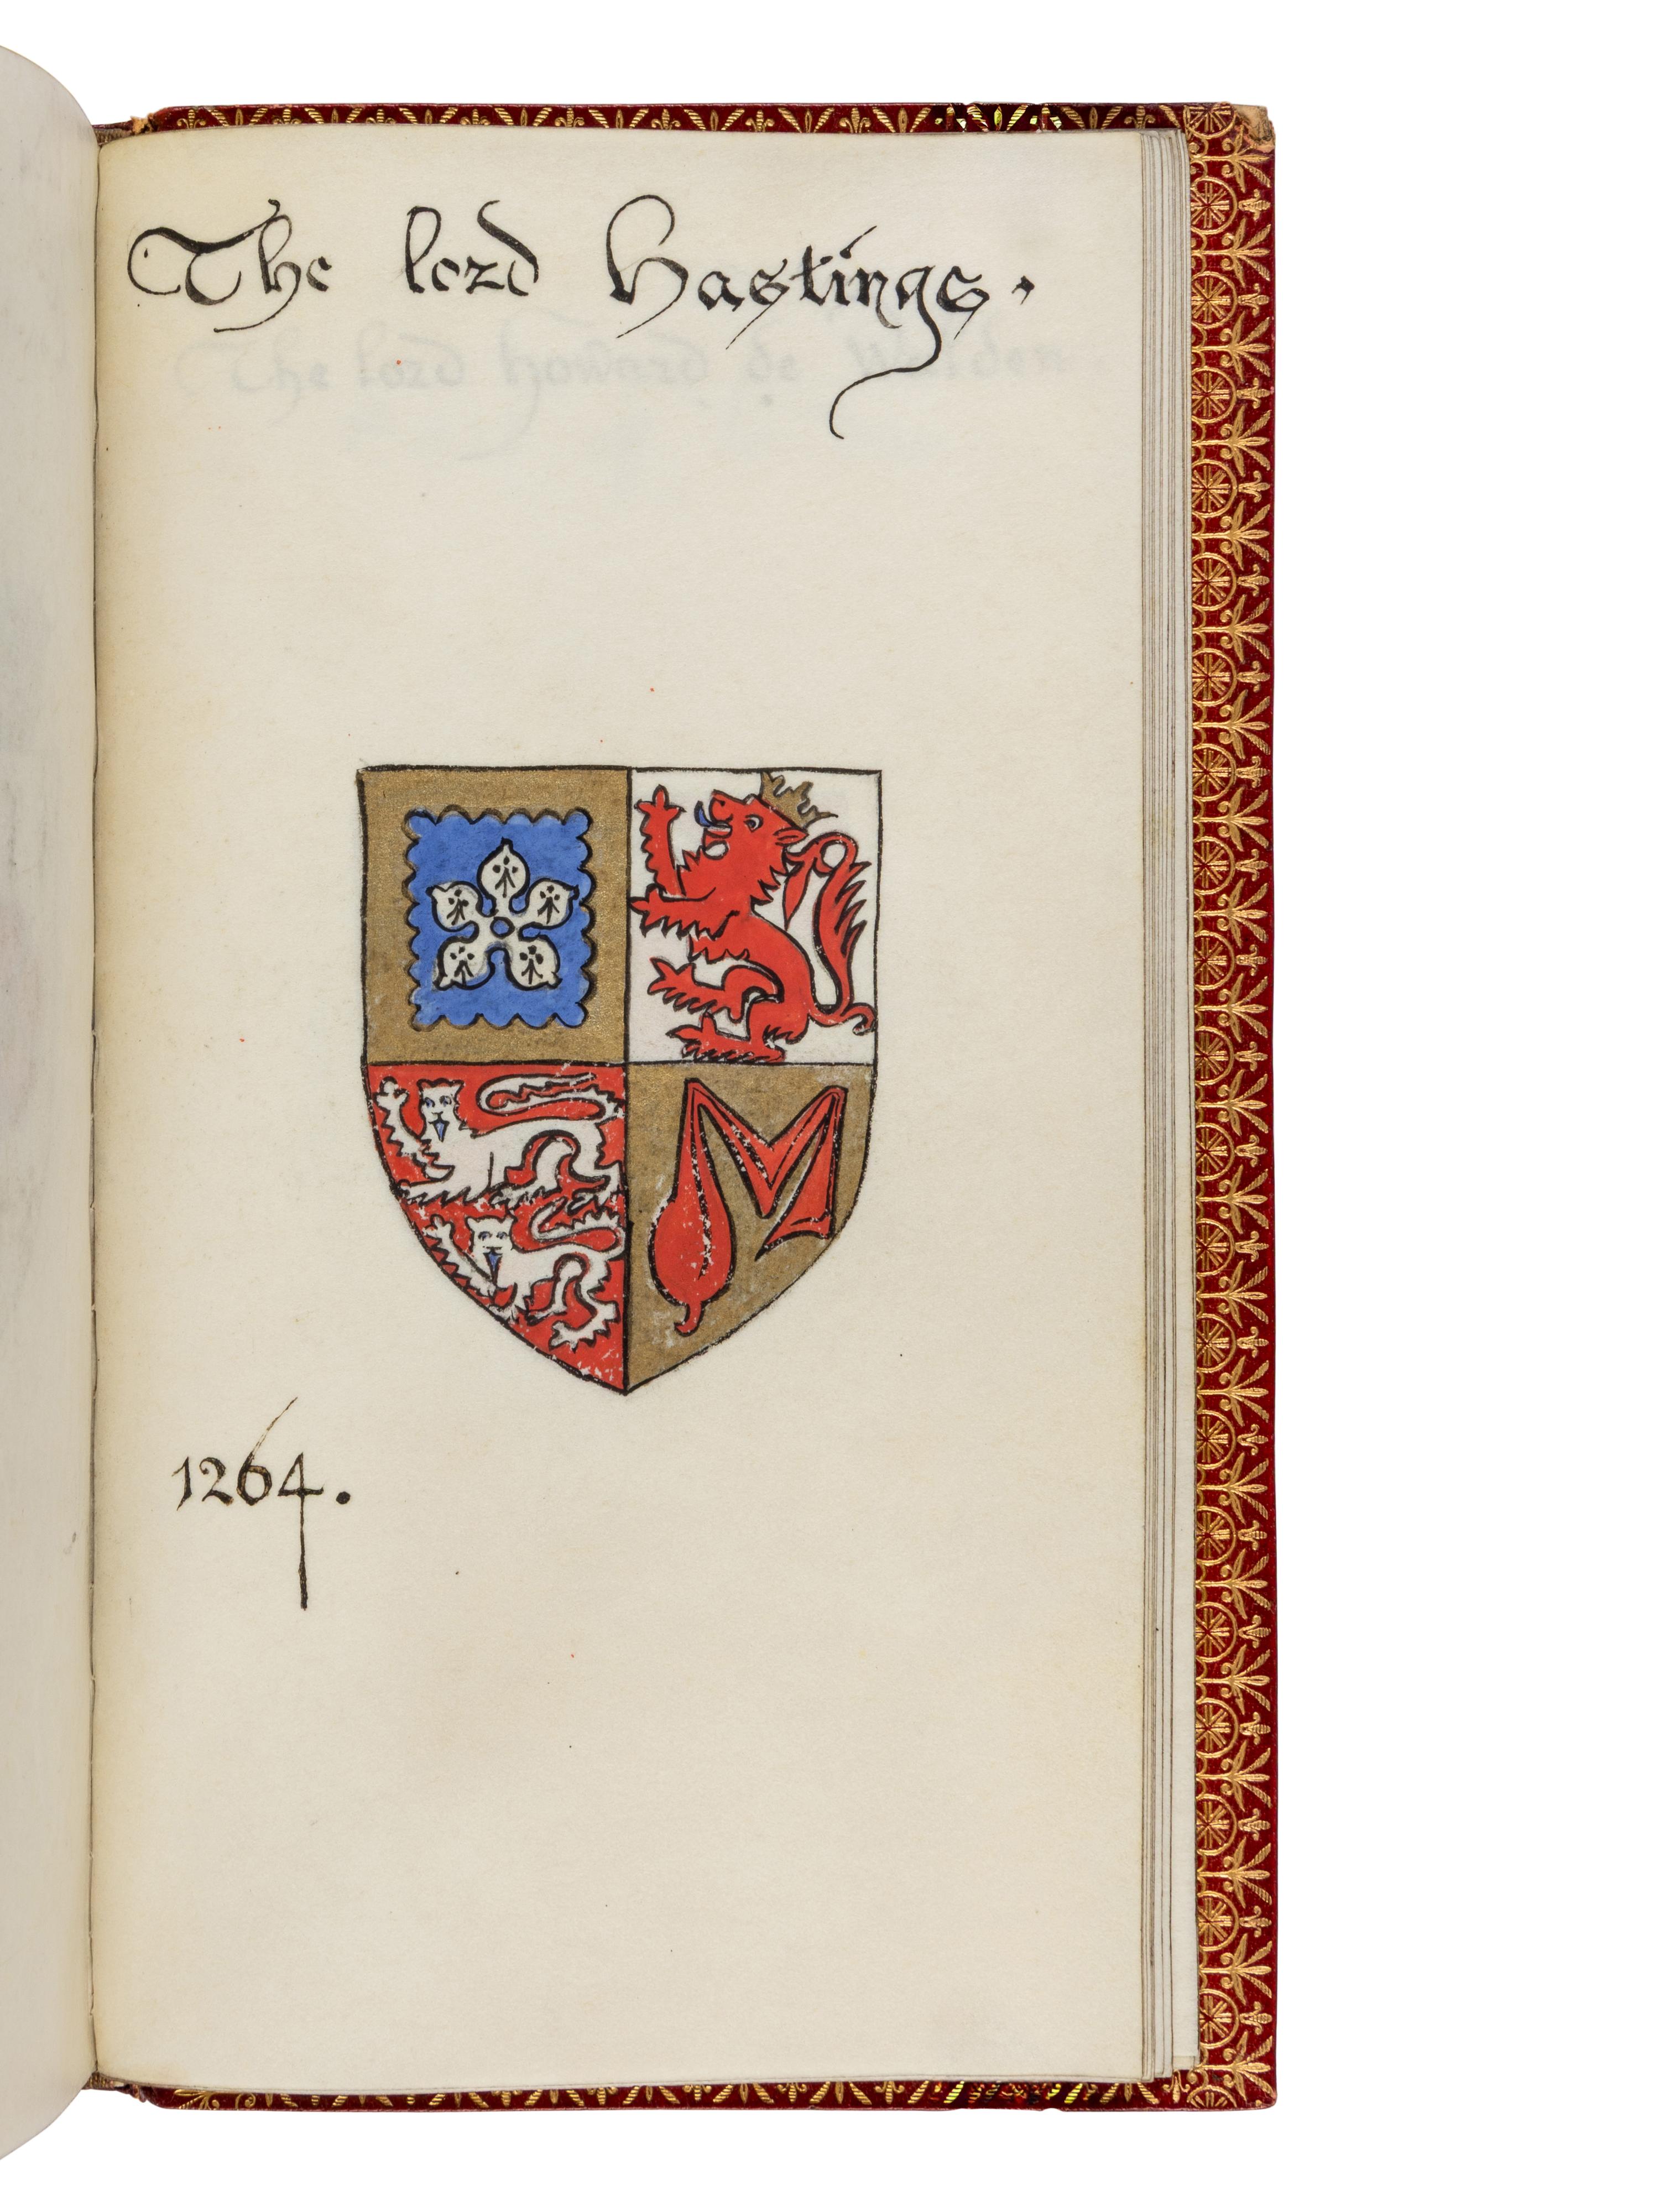 The lord Hastings.
The lord howard de Walden
1264.